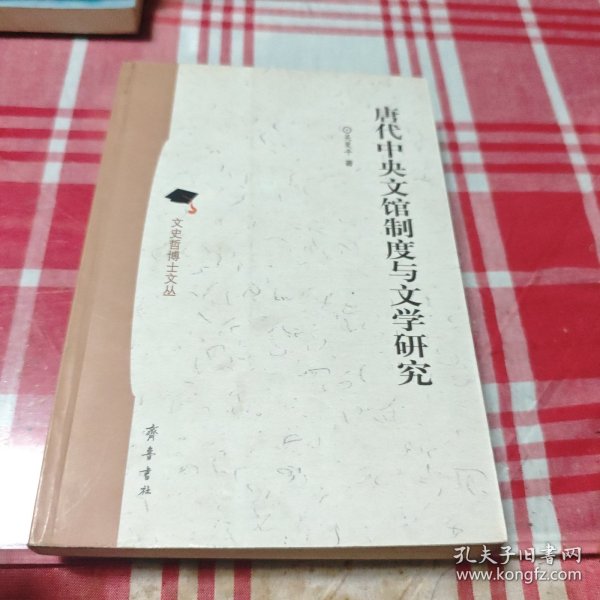 唐代中央文馆制度与文学研究
吴夏平 著
文史哲博士文丛
齊魯書社
孔夫子旧书网
www.kongfz.com